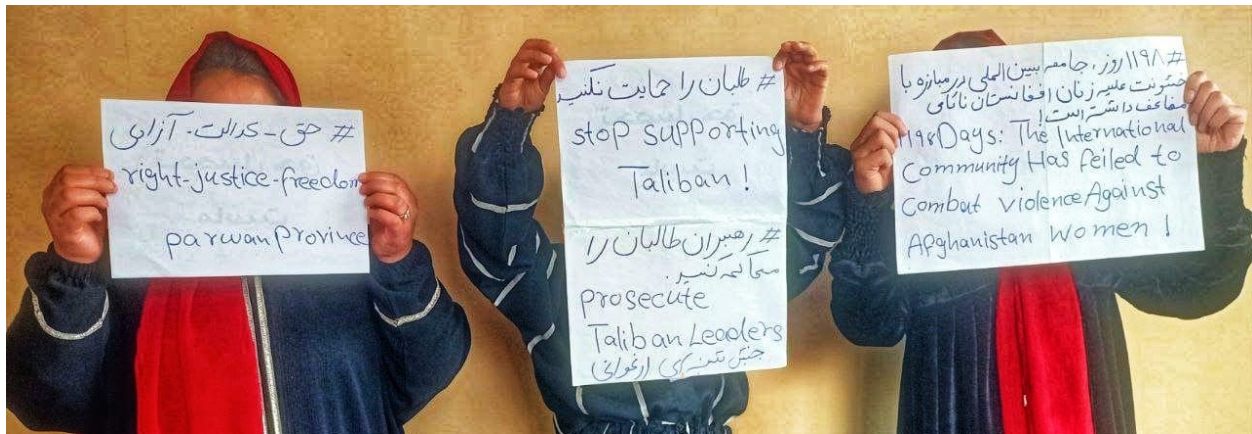 # حق - عدالت - آزادی
right-justice-freedom
parwan province
# طلبان را حمایت نکنید
stop supporting
Taliban !
# رهبران طالبان را
محاکمه کنید.
prosecute
Taliban Leaders
جنبش ارغوانی
# ۱۱۹۸ روز، جامعه بین المللی در مبارزه با
خشونت علیه زنان افغانستان ناکامی
مضاعف داشته است!
1198Days: The International
Community Has feiled to
Combat violence Against
Afghanistan women !